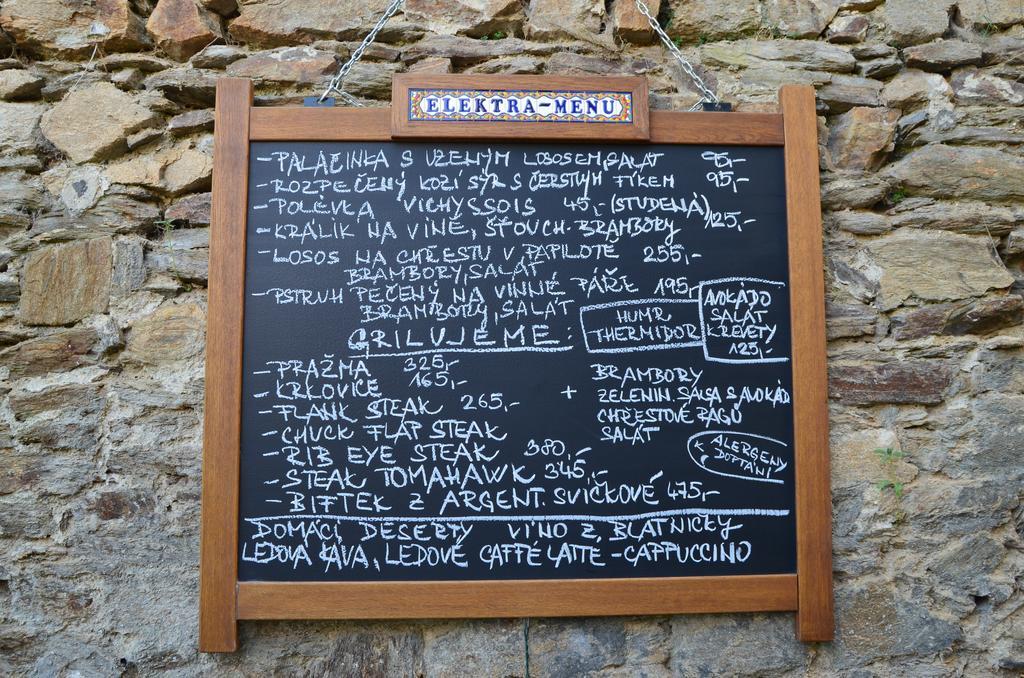 ELEKTRA-MENU
- PALAČINKA S UZENÝM LOSOSEM, SALÁT 95,-
- ROZPEČENÝ KOZÍ SÝR S ČERSTVÝM FÍKEM 95,-
- POLÉVKA VICHYSSOIS 45,- (STUDENÁ)
- KRÁLIK NA VÍNĚ, ŠŤOUCH. BRAMBORY 125,-
- LOSOS NA CHŘESTU V PAPILOTĚ 255,-
BRAMBORY, SALÁT
- PSTRUH PEČENÝ NA VINNÉ PÁŘE 195,-
BRAMBORY, SALÁT
HUMR
THERMIDOR
AVOKÁDO
SALÁT
KREVETY
125,-
GRILUJEME:
- PRAŽMA 325,-
- KRKOVICE 165,-
- FLANK STEAK 265,-
- CHUCK FLAP STEAK
- RIB EYE STEAK 380,-
- STEAK TOMAHAWK 345,-
- BIFTEK Z ARGENT. SVÍČKOVÉ 475,-
+ BRAMBORY
ZELENIN. SALSA S AVOKÁD
CHŘESTOVÉ RAGÚ
SALÁT
ALERGENY
DOPTÁNÍ
DOMÁCÍ DESERTY VÍNO Z BLATNIČKY
LEDOVÁ KÁVA, LEDOVÉ CAFFÉ LATTE - CAPPUCCINO